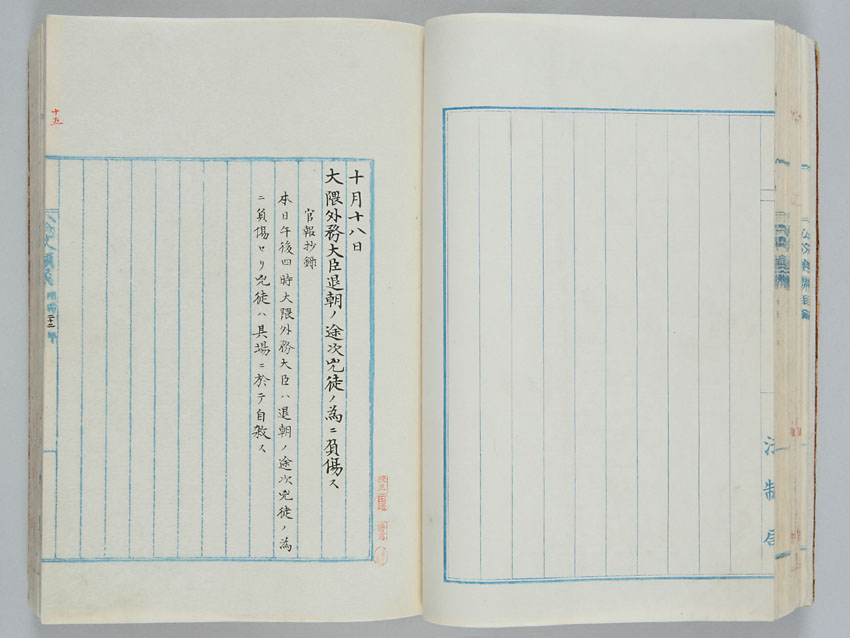 法制局
十月十八日
大隈外務大臣退朝ノ途次兇徒ノ為ニ負傷ス
官報抄録
本日午後四時大隈外務大臣ハ退朝ノ途次兇徒ノ為
ニ負傷セリ兇徒ハ其場ニ於テ自殺ス
十五